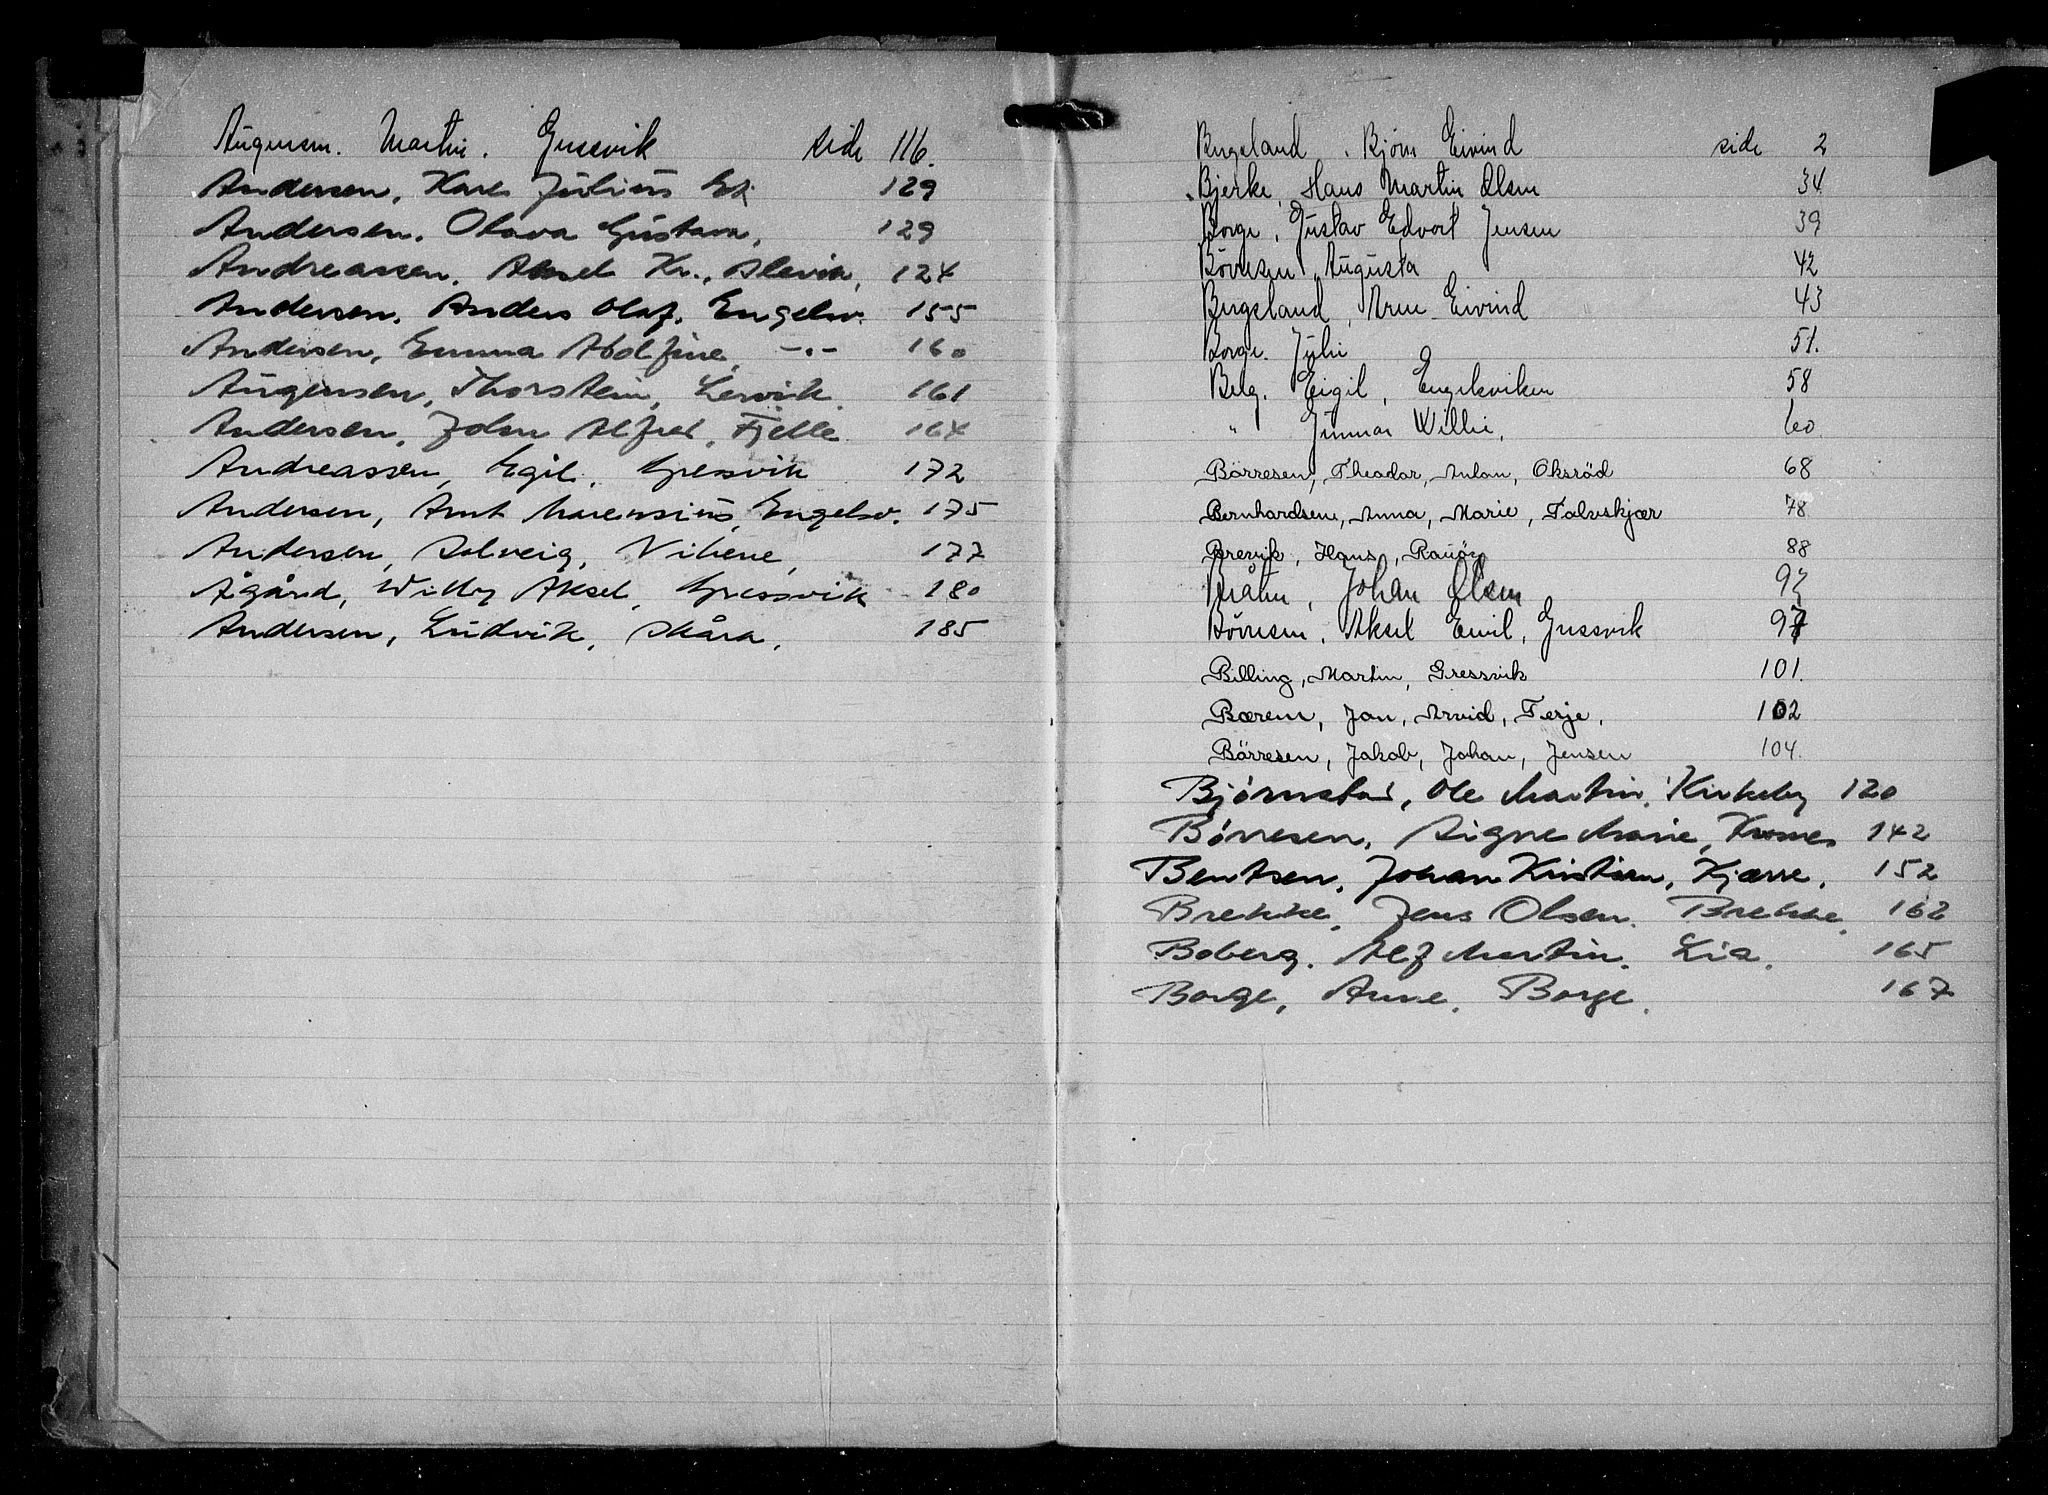 Augensen. Martin. Gressvik side 116.
Andersen, Hans Julius Ek 129
Andersen. Olava Gustava, 129
Andreassen. Aksel Kr., Slevik, 124
Andersen. Anders Olaf. Engelsv. 155
Andersen, Emma Adolfine, -"- 160
Augensen, Thorstein, Lervik. 161
Andersen, John Alfred, Fjelle 164
Andreassen, Egil, Gressvik 172
Andersen, Arnt Marensius, Engelsv. 175
Andersen, Solveig, Vikene, 177
Ågård, Willy Aksel, Gressvik 180
Andersen, Ludvik, Skåra, 185
Bugeland, Bjørn Eivind side 2
Bjerke, Hans Martin Olsen 34
Borge, Gustav Edvort Jensen 39
Børresen, Augusta 42
Bugeland, Arne Eivind 43
Borge. Julie 51.
Berg. Eigil, Engelsviken 58
" Gunnar Willie, 60
Börresen, Theodor, Anton, Oksröd 68
Bernhardsene, Anna, Marie, Talvskjær 78
Brevik, Hans, Rauöy 88
Bråtin, Johan Olsen 92
Børresen, Aksel Emil, Gressvik 97
Billing, Martin, Gressvik 101.
Bærem, Jan, Arvid, Terje, 102
Börresen, Jakob, Johan, Jensen 104.
Bjørnstad, Ole Martin, Kirkeby 120
Børresen, Signe Marie, 142
Bentsen, Johan Kristian, Kjærre, 152
Brekke, Jens Olsen. Brekke, 162
Boberg. Alf Martin. Lia. 165
Borge, Anne, Borge. 167